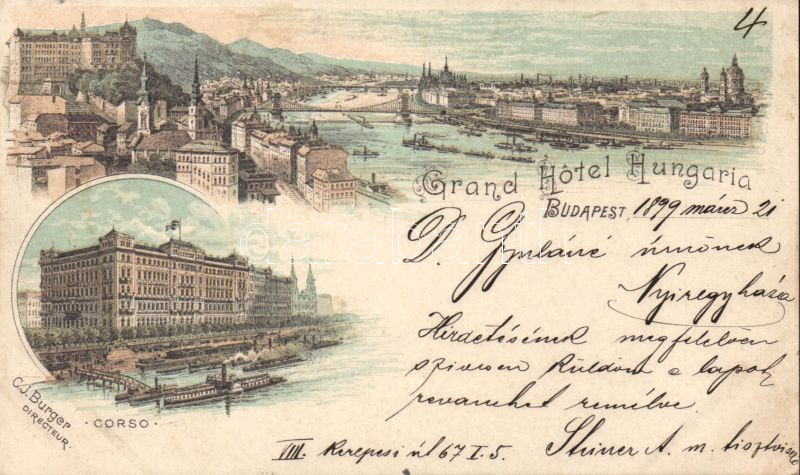 4
Grand Hôtel Hungaria
BUDAPEST, 1899 márcz 21
D. Gyuláné úrnőnek
Nyiregyháza
Hirdetésének megfelelően
szivesen küldöm e lapot
revanchet remélve.
C.J. Burger
DIRECTEUR.
CORSO
VIII. Kerepesi út 67 I. 5. Steiner A. m.